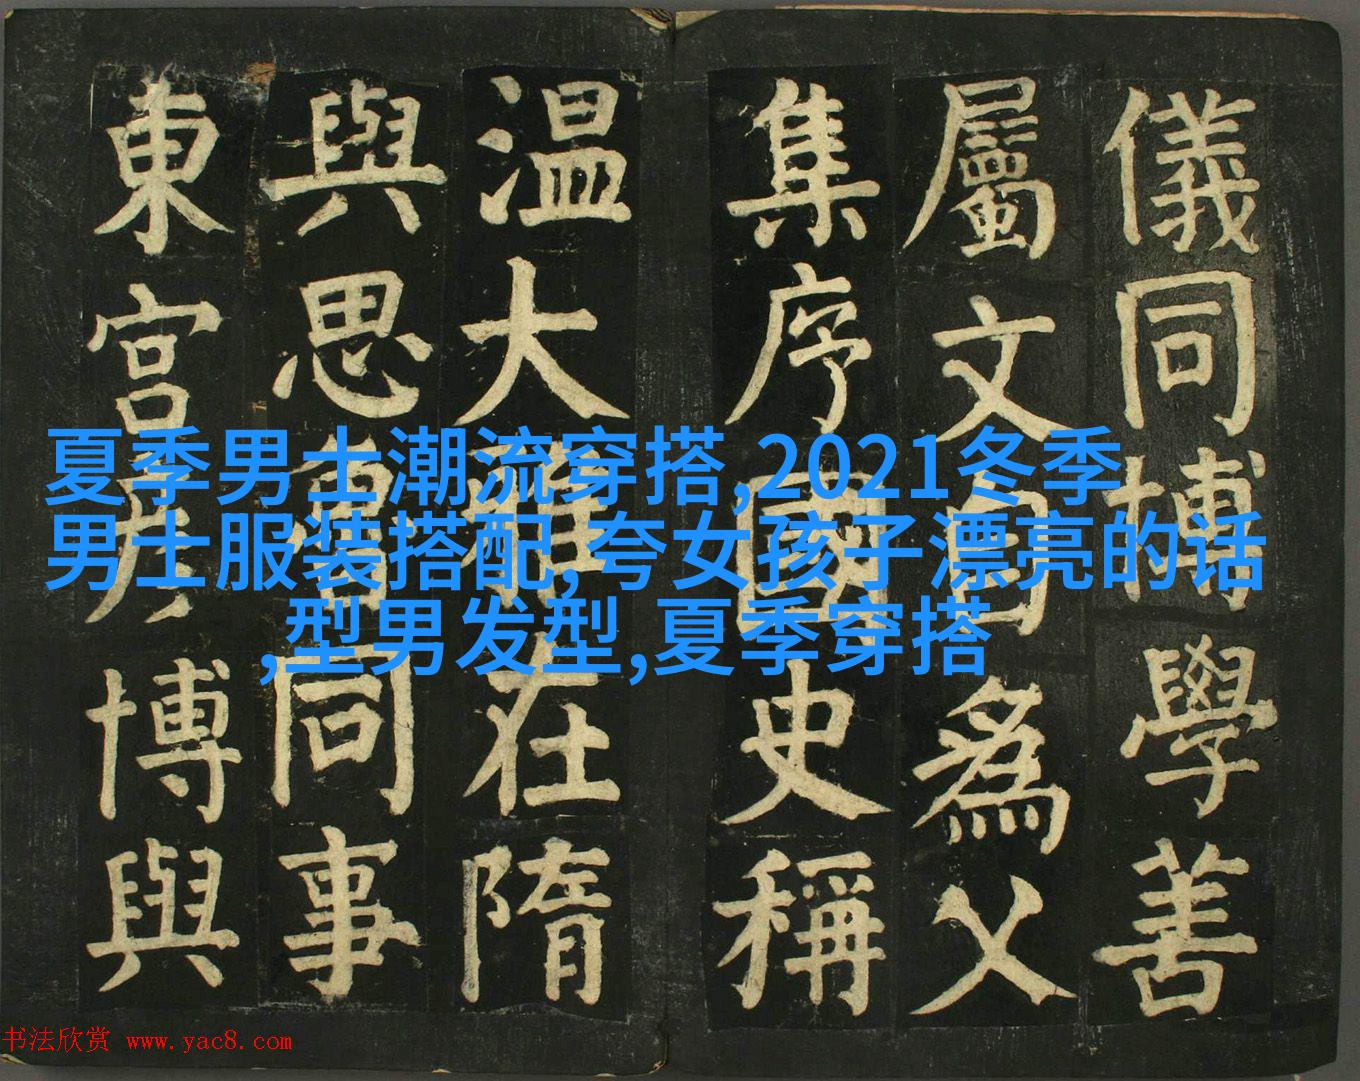 儀同博學善
屬文自爲父
集序國史稱
温大雅在隋
與思魯同事
東宮彥博與
夏季男士潮流穿搭,2021冬季
男士服装搭配,夸女孩子漂亮的话
,型男发型,夏季穿搭
书法欣赏 www.yac8.com